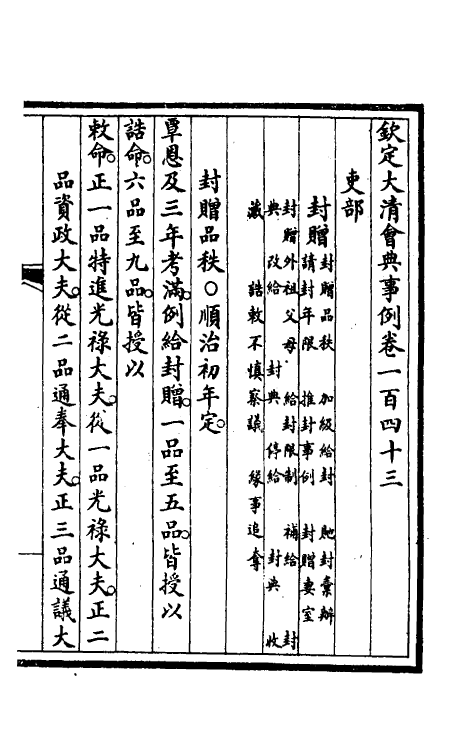 欽定大清會典事例卷一百四十三
吏部
封贈封贈品秩 加級給封 貤封彙辦
請封年限 推封事例 封贈妻室
封贈外祖父母 給封限制 補給 封
典 改給 封典 停給 封典 收
藏 誥敕不慎察議 緣事追奪
封贈品秩○順治初年定。
覃恩及三年考滿。例給封贈。一品至五品。皆授以
誥命。六品至九品。皆授以
敕命。正一品特進光祿大夫。從一品光祿大夫。正二
品資政大夫。從二品通奉大夫。正三品通議大